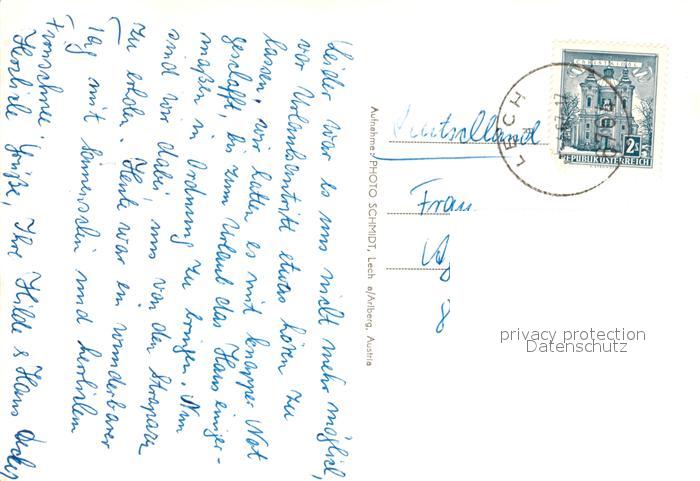 Leider war es uns nicht mehr möglich,
vor Urlaubsantritt etwas hören zu
lassen, wir hatten es mit knapper Not
geschafft, bis zum Urlaub das Haus einiger-
maßen in Ordnung zu bringen. Nun
sind wir dabei, uns von den Strapazen
zu erholen. Heute war ein wunderbarer
Tag mit Sonnenschein und herrlichem
Firnschnee.
Herzliche Grüße, Ihre Hilde & Hans
Aufnahme: PHOTO SCHMIDT, Lech a/Arlberg, Austria
Deutschland
Frau
LECH
CHRISTKINDL
2S
REPUBLIK ÖSTERREICH
privacy protection
Datenschutz